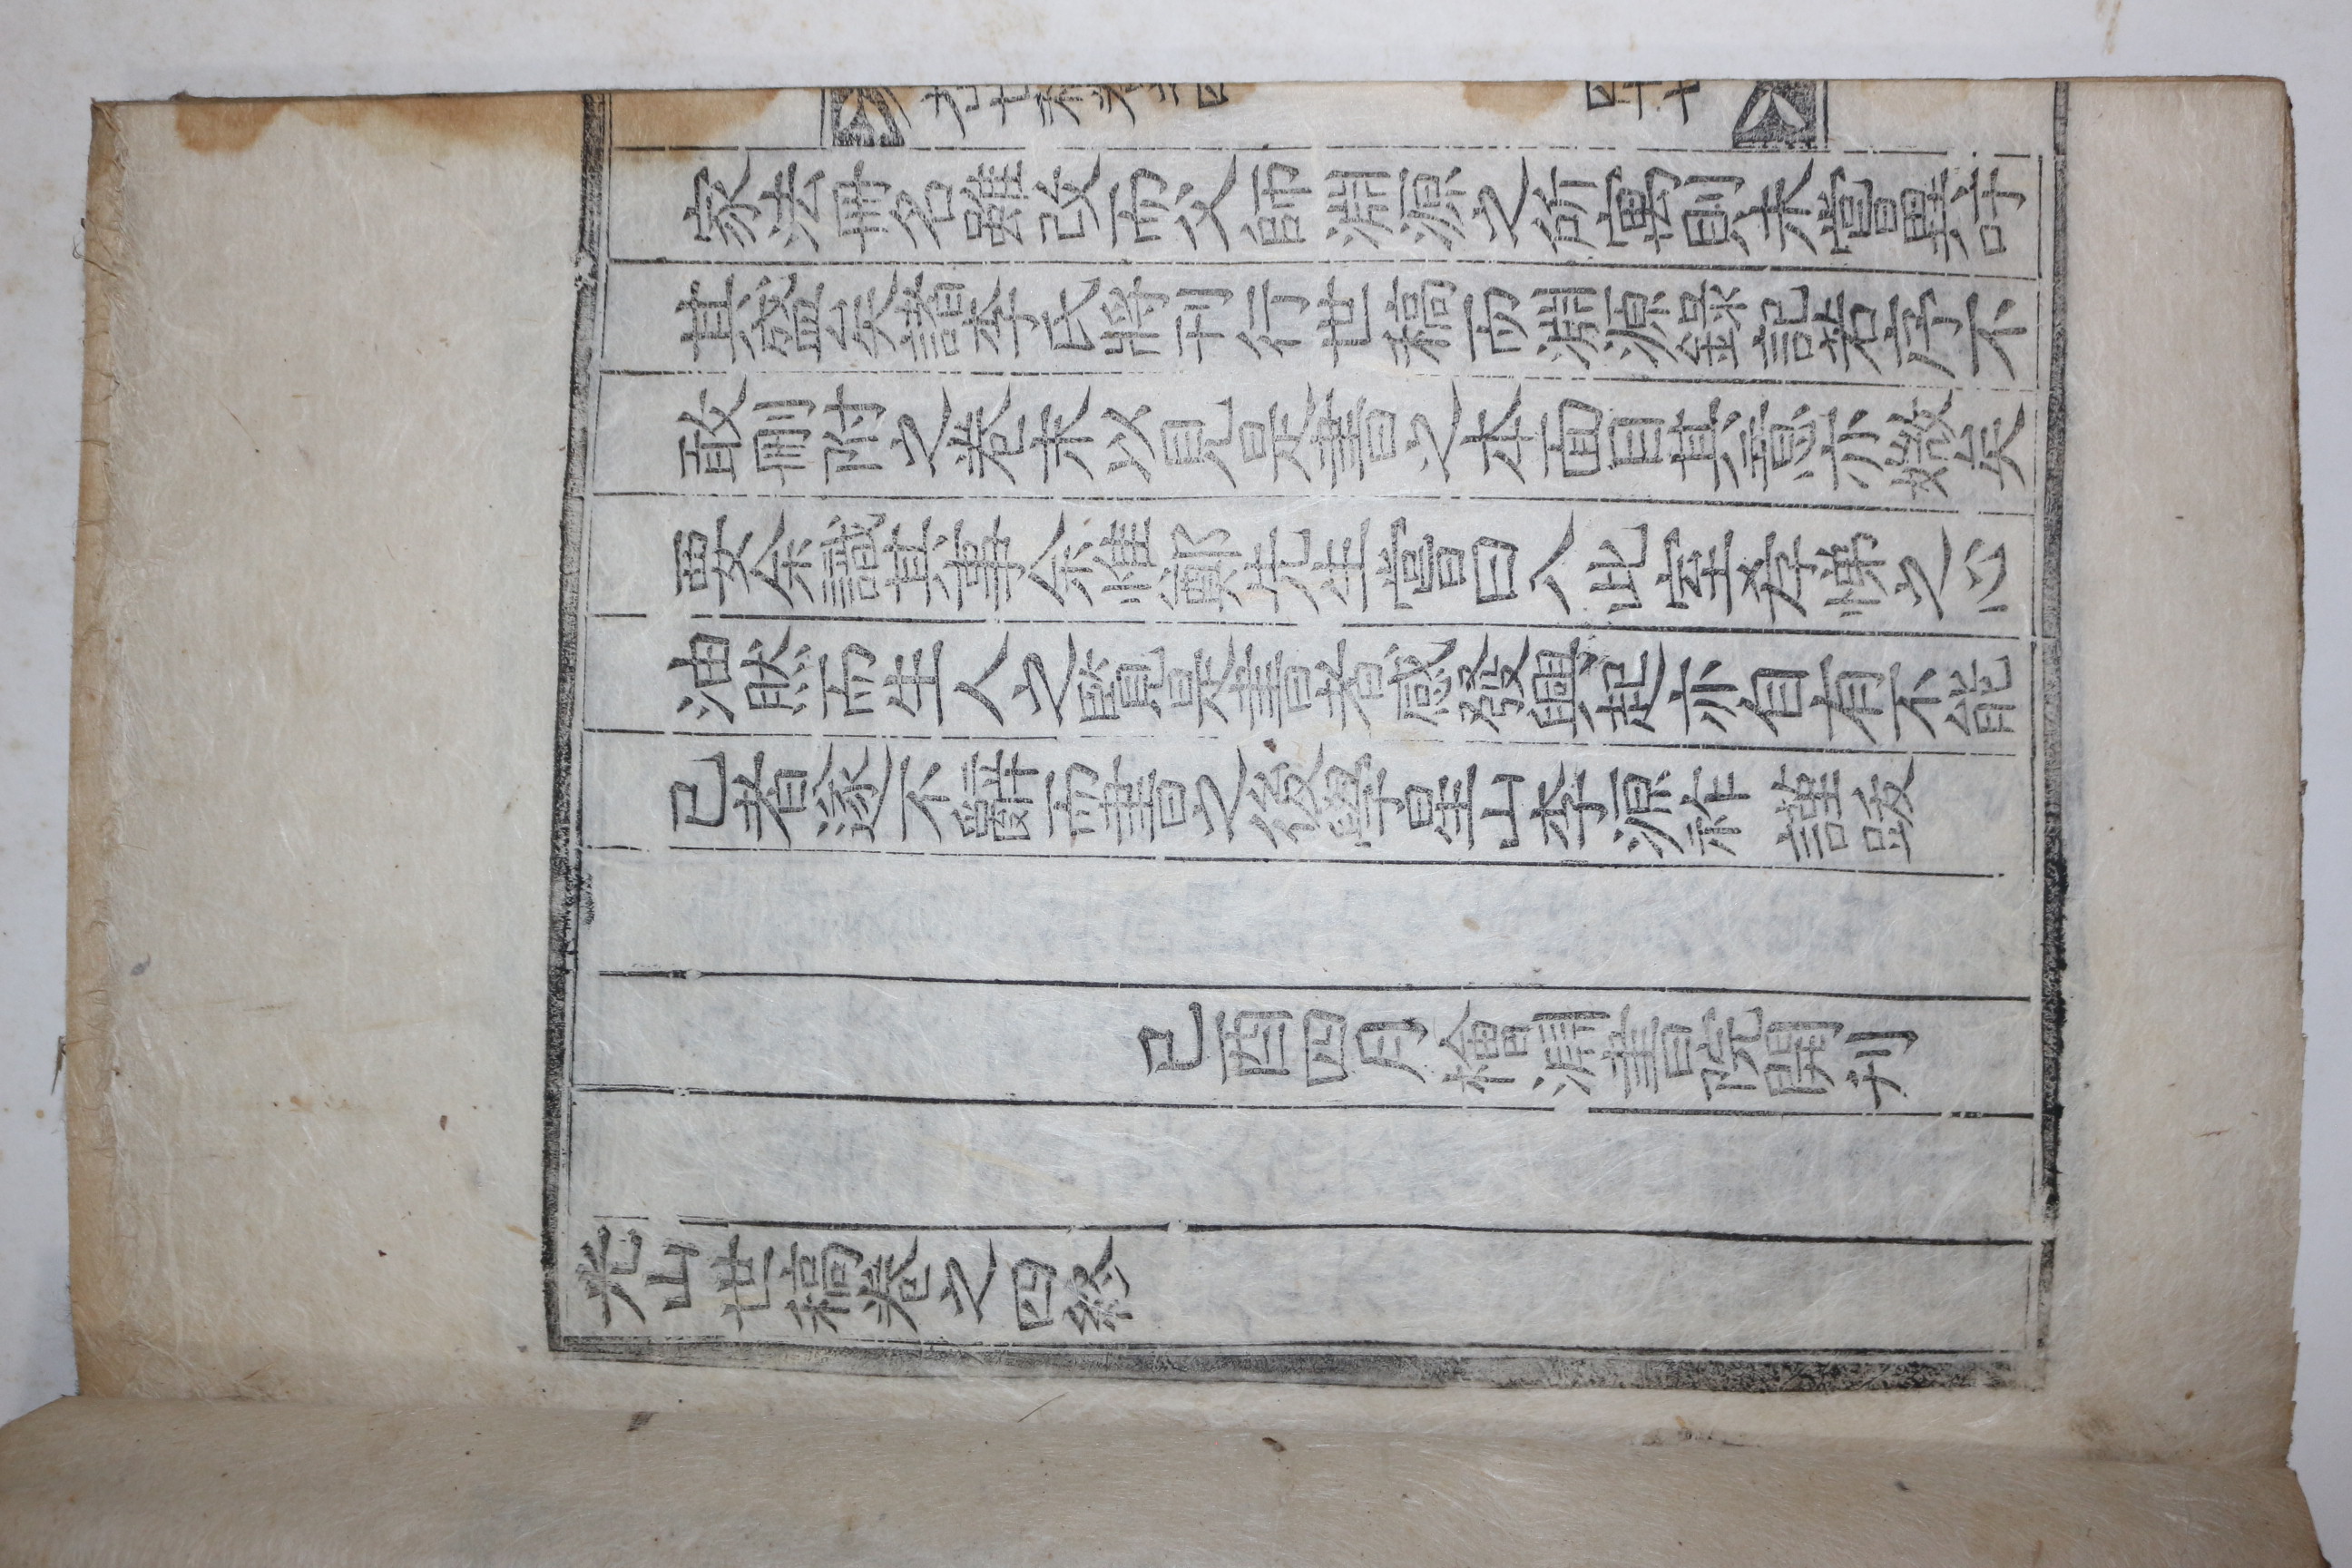 家法冊名雖改而父師淵源之所寓則未嘗異吁
其盛矣諸李氏將刊行世稿而淵源錄記若序不
敢刪附之卷末以見是書之本面目其意亦媺矣
要余識其事余惟鄭先生嘗曰入此室孝悌之心
油然而生人之覧是書者感發興起亦自有不能
已者遂不辭而書之後學星山李源祚 謹跋
己酉四月檜淵書院開刊
光山世稿卷之四終